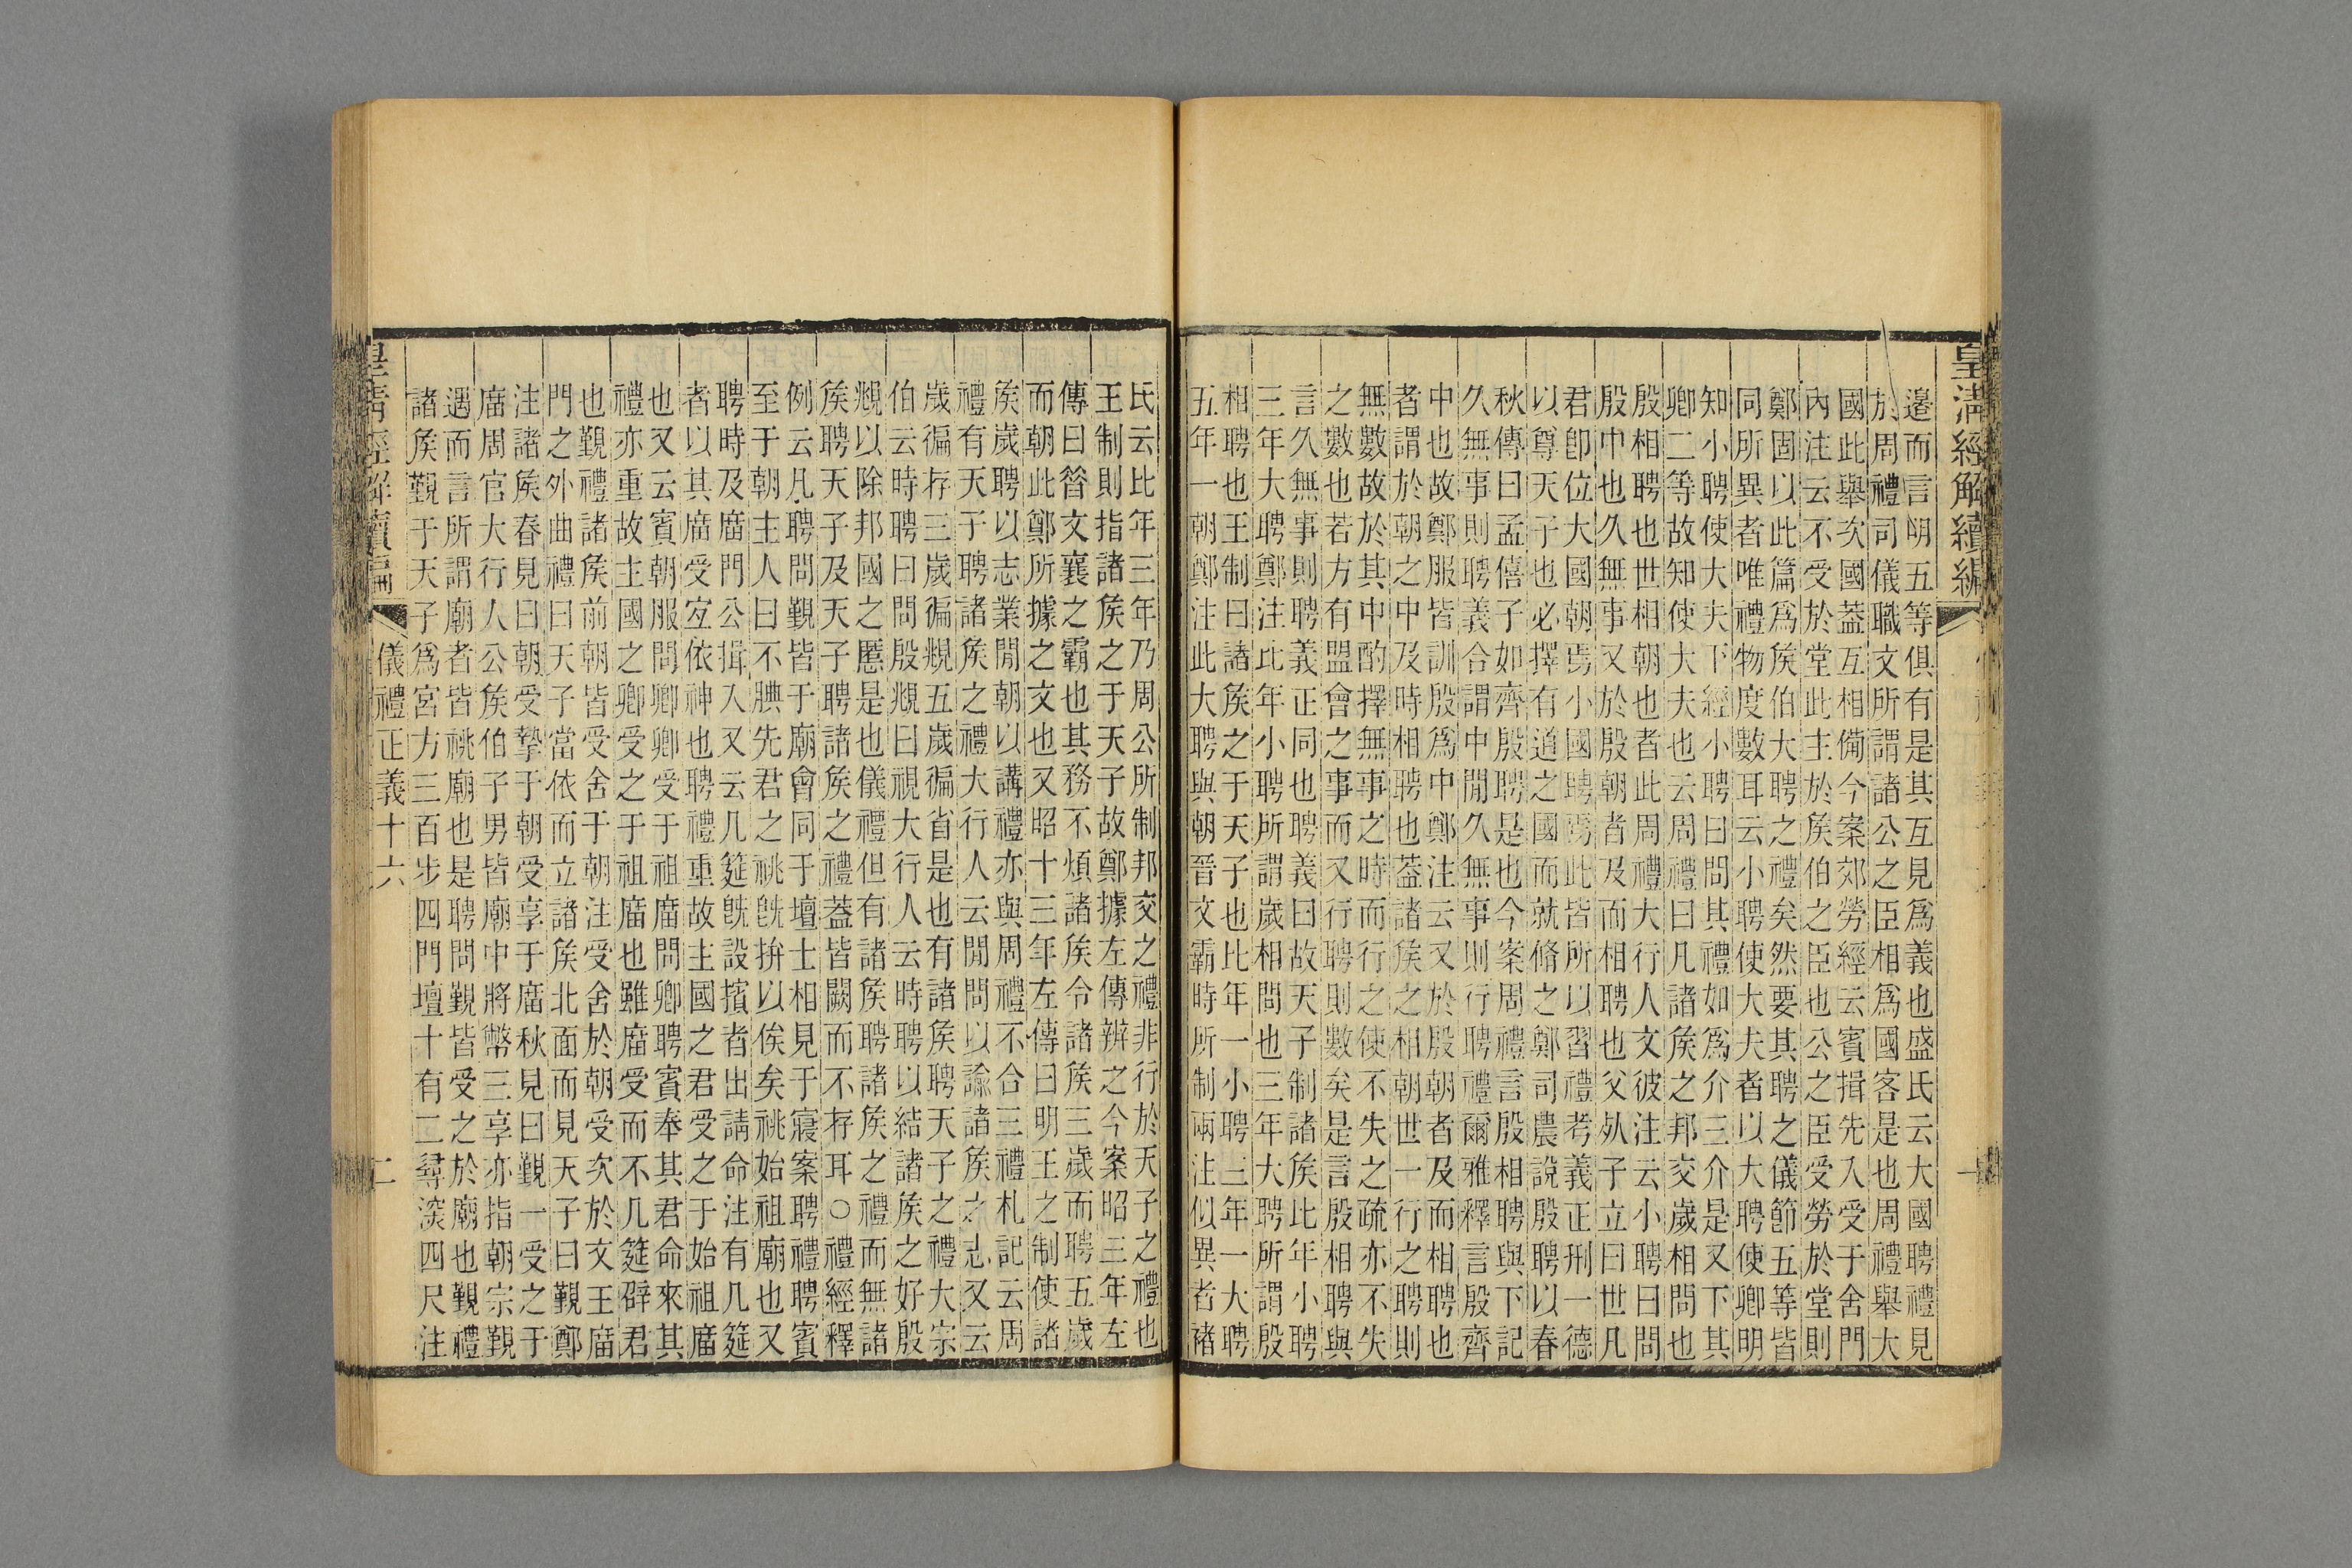 皇清經解續編
邉而言明五等俱有是其互見爲義也盛氏云大國聘禮見
於周禮司儀職文所謂諸公之臣相爲國客是也周禮舉大
國此舉次國葢互相備今案郊勞經云賓揖先入受于舍門
內注云不受於堂此主於矦伯之臣也公之臣受勞於堂則
鄭固以此篇爲矦伯大聘之禮矣然要其聘之儀節五等皆
同所異者唯禮物度數耳云小聘使大夫者以大聘使卿明
知小聘使大夫下經小聘曰問其禮如爲介三介是又下其
卿二等故知使大夫也云周禮曰凡諸矦之邦交歲相問也
殷相聘也世相朝也者此周禮大行人文彼注云小聘曰問
殷中也久無事又於殷朝者及而相聘也父死子立曰世凡
君卽位大國朝焉小國聘焉此皆所以習禮考義正刑一德
以尊天子也必擇有道之國而就脩之鄭司農說殷聘以春
秋傳曰孟僖子如齊殷聘是也今案周禮言殷相聘與下記
久無事則聘義合謂中閒久無事則行聘禮爾雅釋言殷齊
中也故鄭服皆訓殷爲中鄭注云又於殷朝者及而相聘也
者謂於朝之中及時相聘也葢諸矦之相朝世一行之聘則
無數故於其中酌擇無事之時而行之使不失之疏亦不失
之數也若方有盟會之事而又行聘則數矣是言殷相聘與
言久無事則聘義正同也聘義曰故天子制諸矦比年小聘
三年大聘鄭注比年小聘所謂歲相問也三年大聘所謂殷
相聘也王制曰諸矦之于天子也比年一小聘三年一大聘
五年一朝鄭注此大聘與朝晉文霸時所制兩注似異者褚
氏云比年三年乃周公所制邦交之禮非行於天子之禮也
王制則指諸矦之于天子故鄭據左傳辨之今案昭三年左
傳曰晉文襄之霸也其務不煩諸矦令諸矦三歲而聘五歲
而朝此鄭所據之文也又昭十三年左傳曰明王之制使諸
矦歲聘以志業閒朝以講禮亦與周禮不合三禮札記云周
禮有天于聘諸矦之禮大行人云閒問以諭諸矦之志又云
歲徧存三歲徧覜五歲徧省是也有諸矦聘天子之禮大宗
伯云時聘曰問殷覜曰視大行人云時聘以結諸矦之好殷
覜以除邦國之慝是也儀禮但有諸矦聘諸矦之禮而無諸
矦聘天子及天子聘諸矦之禮葢皆闕而不存耳○禮經釋
例云凡聘問覲皆于廟會同于壇士相見于寢案聘禮聘賓
至于朝主人曰不腆先君之祧旣拚以俟矣祧始祖廟也又
聘時及廟門公揖入又云几筵旣設擯者出請命注有几筵
者以其廟受宐依神也聘禮重故主國之君受之于始祖廟
也又云賓朝服問卿卿受于祖廟問卿聘賓奉其君命來其
禮亦重故主國之卿受之于祖廟也雖廟受而不几筵辟君
也覲禮諸矦前朝皆受舍于朝注受舍於朝受次於文王廟
門之外曲禮曰天子當依而立諸矦北面而見天子曰覲鄭
注諸矦春見曰朝受摯于朝受享于廟秋見曰覲一受之于
廟周官大行人公矦伯子男皆廟中將幣三享亦指朝宗覲
遇而言所謂廟者皆祧廟也是聘問覲皆受之於廟也覲禮
諸矦覲于天子爲宮方三百步四門壇十有二尋深四尺注
皇清經解續編
儀禮正義十六
二